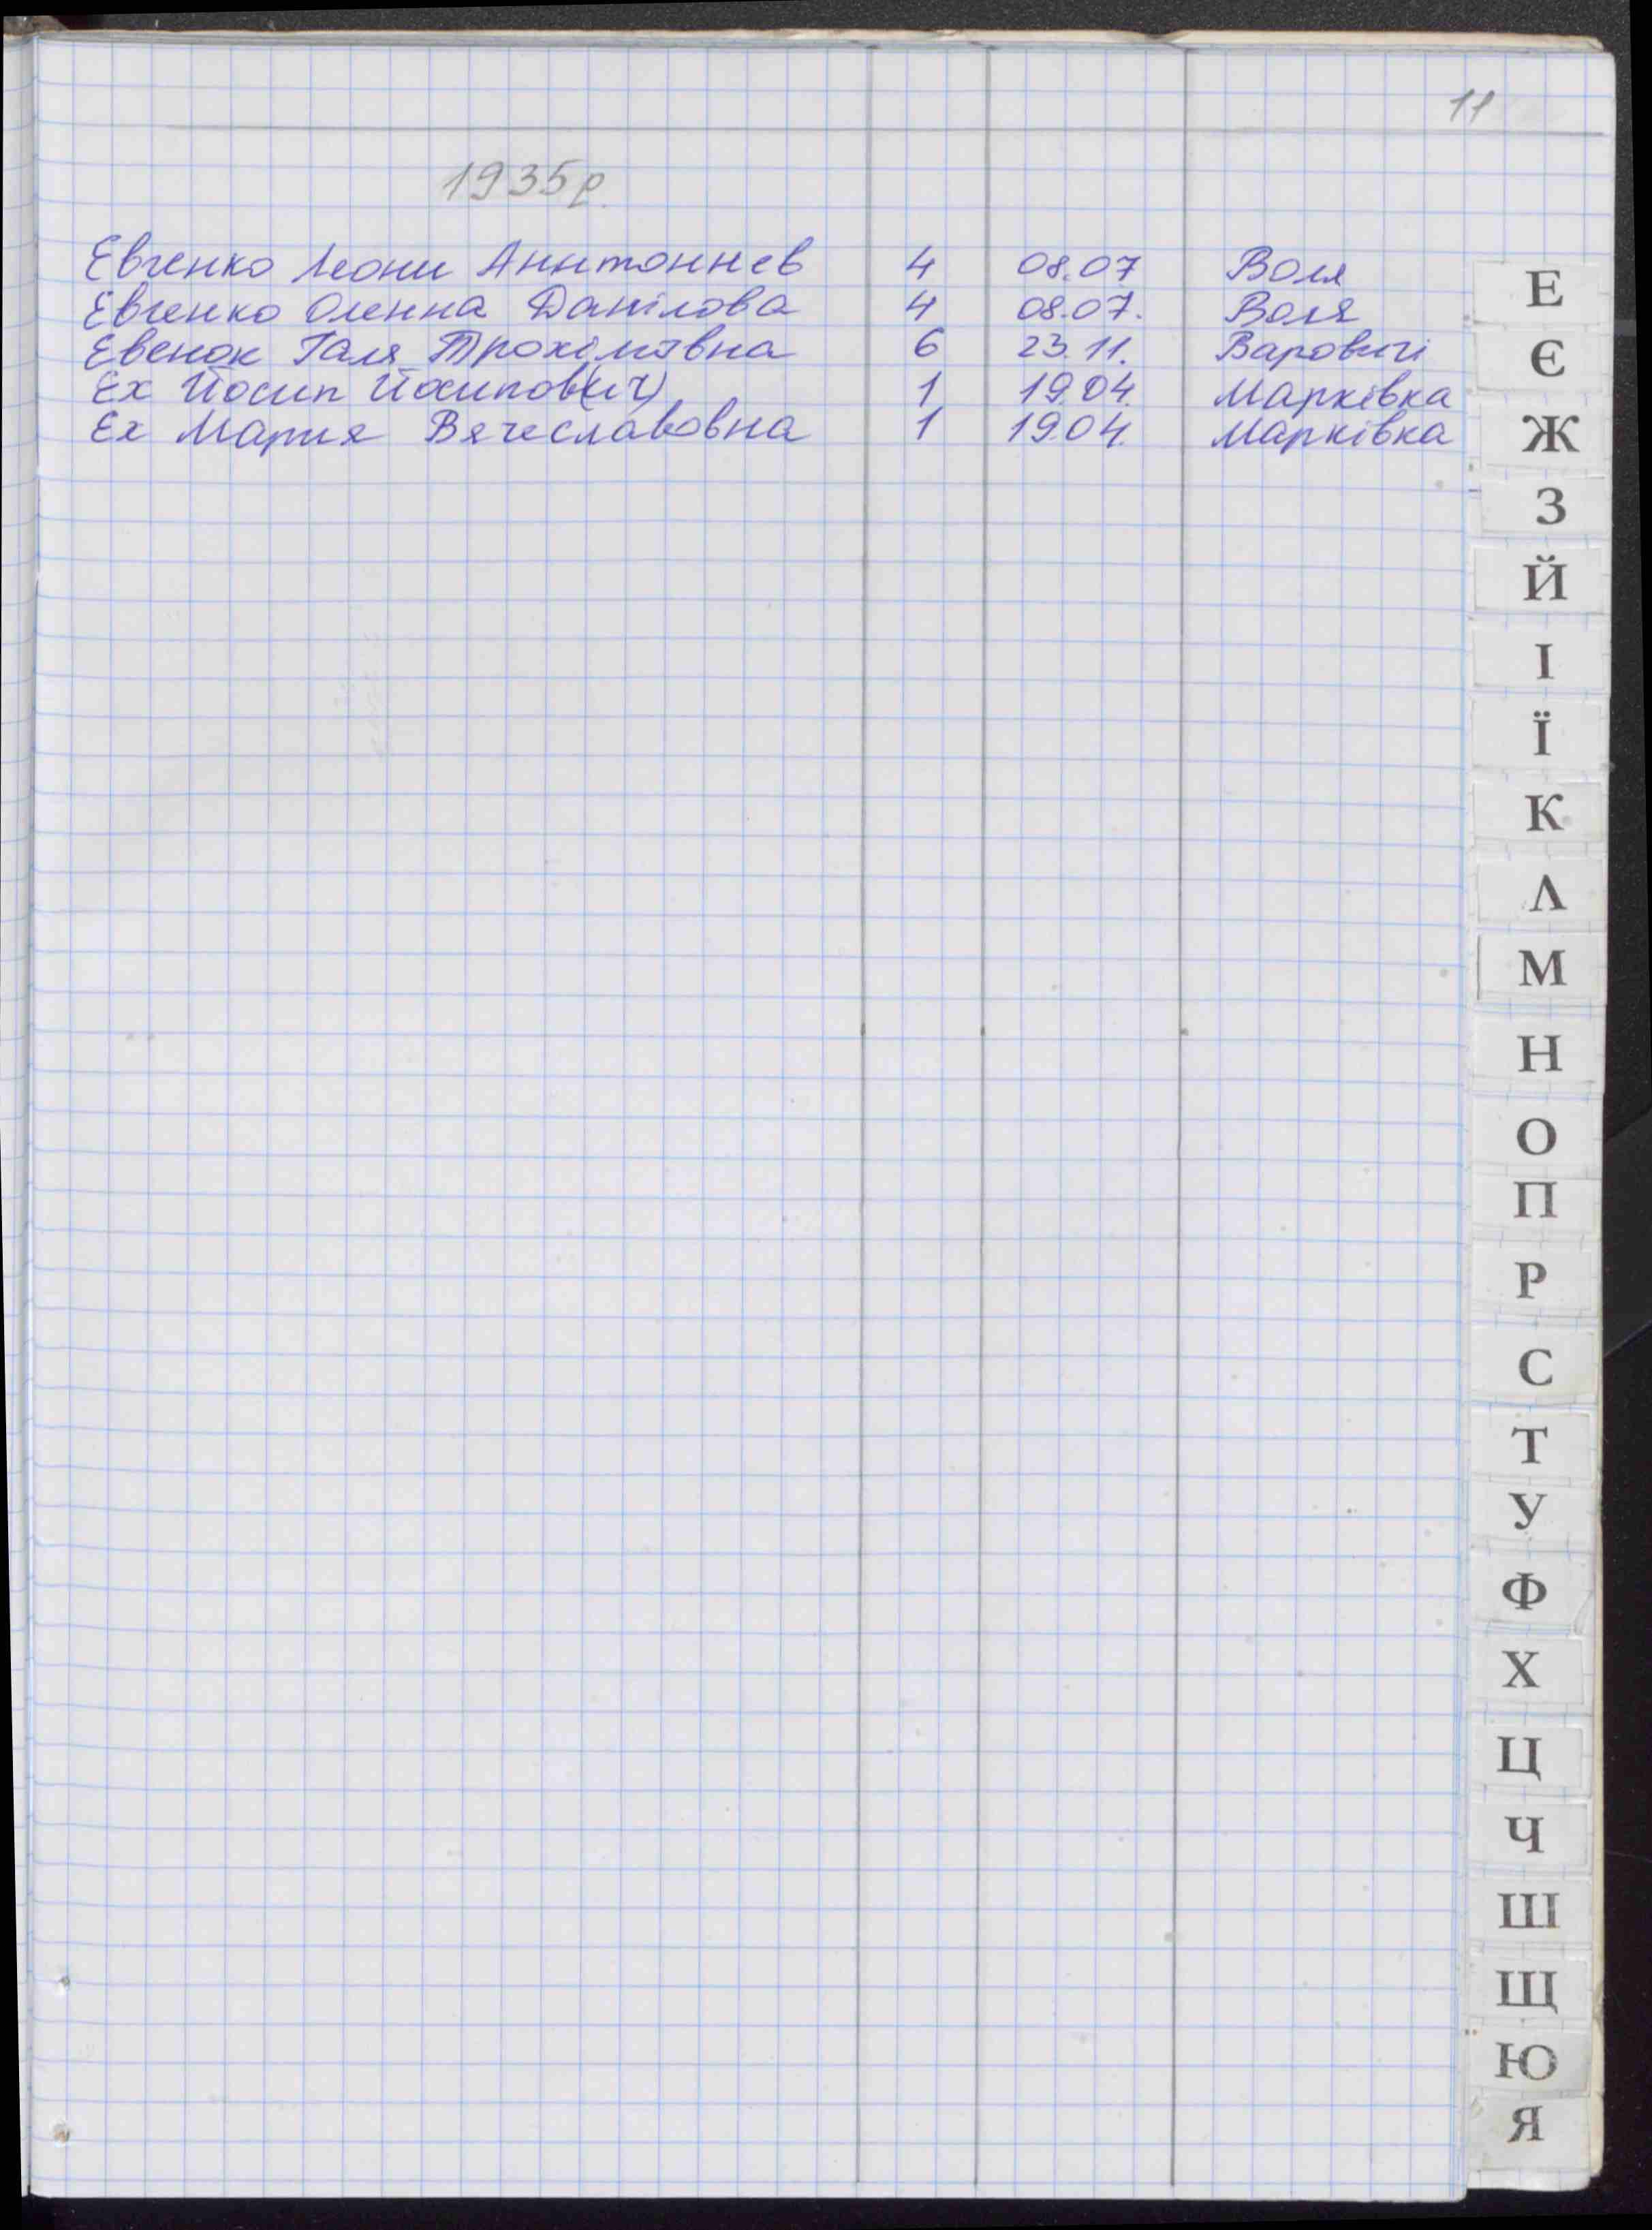 11
1935р.
Евченко Леони Аннтоннев 4 08.07 Воля
Евченко Оленна Данілова 4 08.07. Воля
Евенок Галя Трохімовна 6 23.11. Варовичі
Ех Йосип Йосипов(ич) 1 19.04. Марківка
Ех Мария Вячеславовна 1 19.04. Марківка
Е
Є
Ж
З
Й
І
Ї
К
Л
М
Н
О
П
Р
С
Т
У
Ф
Х
Ц
Ч
Ш
Щ
Ю
Я